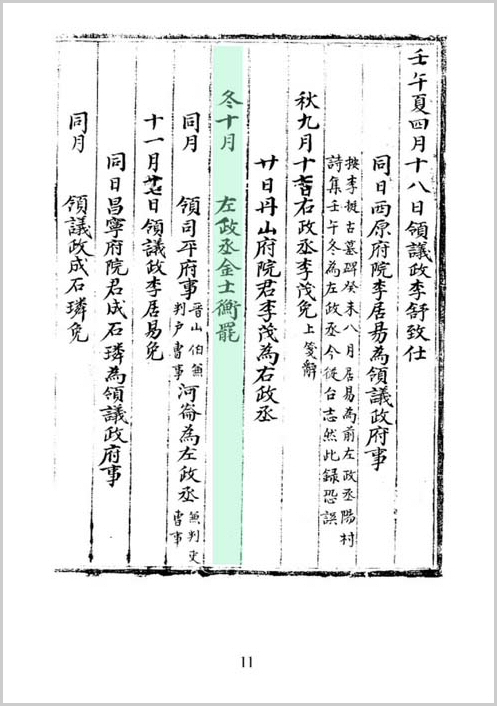 壬午夏四月十八日領議政李舒致仕
同日西原府院李居易為領議政府事
按李挺古墓碑癸未八月居易為前左政丞陽村
詩集壬午冬為左政丞今從台志然此録恐誤
秋九月十 右政丞李茂免上箋辭
廿日丹山府院君李茂為右政丞
冬十月 左政丞金士衡罷
同月 領司平府事晉山伯兼判户曺事河崙為左政丞兼判吏曺事
十一月 日領議政李居易免
同日昌寧府院君成石璘為領議政府事
同月 領議政成石璘免
11